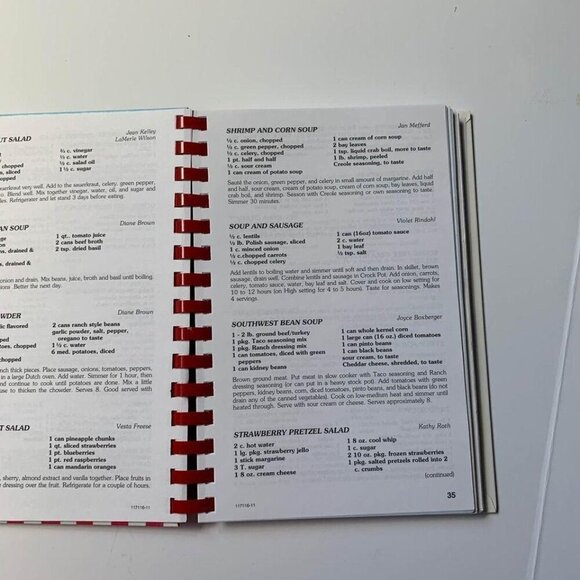 Jean Kelley
UT SALAD LaMerle Wilson
¾ c. vinegar
½ c. water
chopped ½ c. salad oil
s, sliced 1 ½ c. sugar
chopped
auerkraut very well. Add to the sauerkraut, celery, green pepper,
. Blend well. Mix together vinegar, water, oil, and sugar and
les. Refrigerate and let stand 3 days before eating.
AN SOUP Diane Brown
1 qt.. tomato juice
s, drained & 2 cans beef broth
2 tsp. dried basil
s, drained &
onion and drain. Mix beans, juice, broth and basil until boiling.
ions. Better the next day.
WDER Diane Brown
ic flavored 2 cans ranch style beans
garlic powder, salt, pepper,
chopped oregano to taste
½ c. water
atoes, chopped 6 med. potatoes, diced
nch thick pieces. Place sausage, onions, tomatoes, peppers,
in a large Dutch oven. Add water. Simmer for 1 hour, then
and continue to cook until potatoes are done. Mix a little
use to thicken the chowder. Serves 8. Good served with
T SALAD Vesta Freese
1 can pineapple chunks
1 qt. sliced strawberries
1 pt. blueberries
1 pt. red raspberries
1 can mandarin oranges
, sherry, almond extract and vanilla together. Place fruits in
dressing over the fruit. Refrigerate for a couple of hours.
117116-11
SHRIMP AND CORN SOUP Jan Mefferd
½ c. onion, chopped 1 can cream of corn soup
½ c. green pepper, chopped 2 bay leaves
½ c. celery, chopped 1 tsp. liquid crab boil, more to taste
1 pt. half and half 1 lb. shrimp, peeled
½ c. sour cream Creole seasoning, to taste
1 can cream of potato soup
Sauté the onion, green pepper, and celery in small amount of margarine. Add half
and half, sour cream, cream of potato soup, cream of corn soup, bay leaves, liquid
crab boil, and shrimp. Season with Creole seasoning or own seasoning to taste.
Simmer 30 minutes.
SOUP AND SAUSAGE Violet Rindahl
½ c. lentils 1 can (16oz) tomato sauce
½ lb. Polish sausage, sliced 2 c. water
1 c. minced onion 1 bay leaf
½ c.chopped carrots ½ tsp. salt
½ c. chopped celery
Add lentils to boiling water and simmer until soft and then drain. In skillet, brown
sausage, drain well. Combine lentils and sausage in Crock Pot. Add onion, carrots,
celery, tomato sauce, water, bay leaf and salt. Cover and cook on low setting for
10 to 12 hours (on High setting for 4 to 5 hours). Taste for seasonings. Makes
4 servings.
SOUTHWEST BEAN SOUP Joyce Boxberger
1 - 2 lb. ground beef/turkey 1 can whole kernel corn
1 pkg. Taco seasoning mix 1 large can (16 oz.) diced tomatoes
1 pkg. Ranch dressing mix 1 can pinto beans
1 can tomatoes, diced with green 1 can black beans
peppers sour cream, to taste
1 can kidney beans Cheddar cheese, shredded, to taste
Brown ground meat. Put meat in slow cooker with Taco seasoning and Ranch
dressing seasoning (or can put in a heavy stock pot). Add tomatoes with green
peppers, kidney beans, corn, diced tomatoes, pinto beans, and black beans (do not
drain any of the canned vegetables). Cook on low-medium heat and simmer until
heated through. Serve with sour cream or cheese. Serves approximately 8.
STRAWBERRY PRETZEL SALAD Kathy Roth
2 c. hot water 1 8 oz. cool whip
1 lg. pkg. strawberry jello 1 c. sugar
1 stick margarine 2 10 oz. pkg. frozen strawberries
3 T. sugar 1 pkg. salted pretzels rolled into 2
1 8 oz. cream cheese c. crumbs
(continued)
117116-11 35